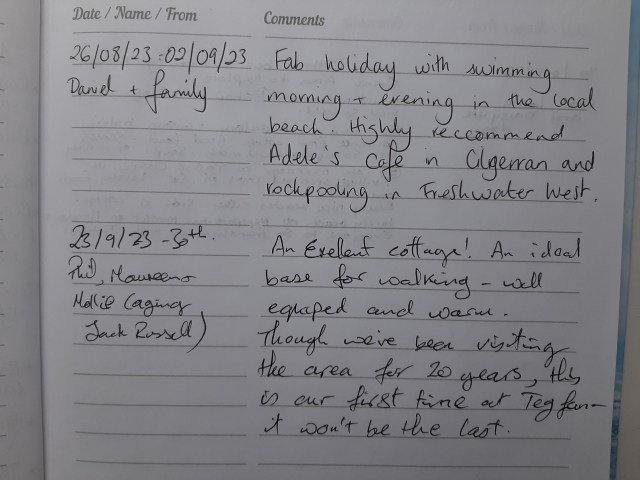 Date / Name / From
Comments
26/08/23 - 02/09/23
Daniel + family
Fab holiday with swimming
morning + evening in the local
beach. Highly reccommend
Adele's Café in Cilgerran and
rockpooling in Freshwater West.
23/9/23 - 30th.
Phil, Maureen
Mollie (aging
Jack Russell)
An Exellent cottage! An ideal
base for walking - well
equaped and warm.
Though we've been visiting
the area for 20 years, this
is our first time at Teg fan -
it won't be the last.